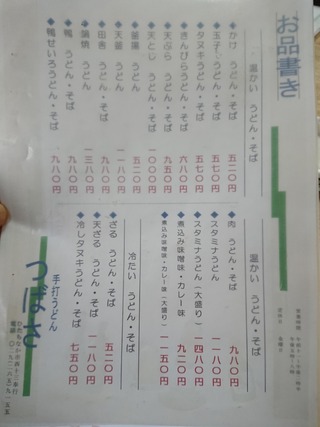 お品書き
温かい うどん・そば
◆かけ うどん・そば 五二〇円
◆玉子しうどん・そば 五七〇円
◆タヌキうどん・そば 五七〇円
◆きんぴらうどん・そば 六八〇円
◆天ぷら うどん・そば 九五〇円
◆天とじ うどん・そば 一〇〇〇円
◆釜揚 うどん 五二〇円
◆天釜 うどん 一一八〇円
◆田舎 うどん・そば 九八〇円
◆鍋焼 うどん 一三八〇円
◆鴨 うどん・そば 九八〇円
◆鴨せいろうどん・そば 九八〇円
温かい うどん・そば
◆肉 うどん・そば 九八〇円
◆スタミナうどん 一一八〇円
◆スタミナうどん(大盛り) 一四八〇円
◆煮込み味噌味・カレー味 九二〇円
◆煮込み味噌味・カレー味(大盛り) 一一五〇円
冷たい うどん・そば
◆ざる うどん・そば 五二〇円
◆天ざる うどん・そば 一一八〇円
◆冷しタヌキうどん・そば 七五〇円
手打うどん
つばさ
営業時間
定休日